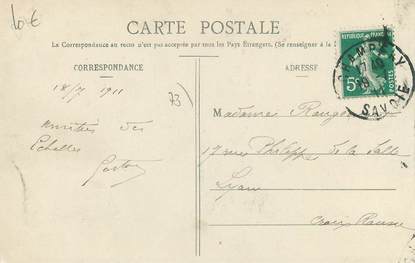 10 €
CARTE POSTALE
La Correspondance au recto n'est pas acceptée par tous les Pays Étrangers. (Se renseigner à la
CORRESPONDANCE
ADRESSE
RÉPUBLIQUE FRANÇAISE
5c
POSTES
SAVOIE
18/7 1911
73
Amitiés des
Echelles
Gaston
Madame
17 rue Philippe de la Salle
Lyon
Croix Rousse